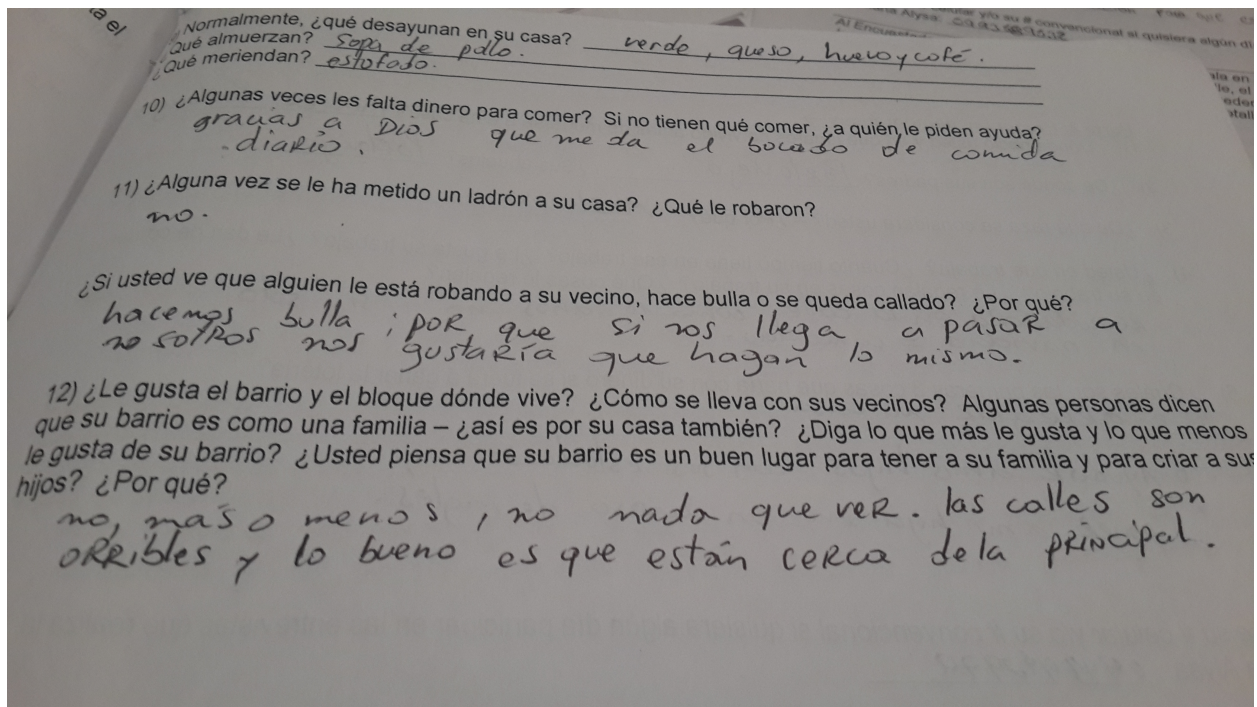 a el
Normalmente, ¿qué desayunan en su casa? verde, queso, huevo y cofé.
Qué almuerzan? Sopa de pollo.
¿Qué meriendan? estofado.
10) ¿Algunas veces les falta dinero para comer? Si no tienen qué comer, ¿a quién le piden ayuda?
gracias a Dios que me da el bocado de comida
diario.
11) ¿Alguna vez se le ha metido un ladrón a su casa? ¿Qué le robaron?
no.
¿Si usted ve que alguien le está robando a su vecino, hace bulla o se queda callado? ¿Por qué?
hacemos bulla ; por que si nos llega a pasar a
nosotros nos gustaría que hagan lo mismo.
12) ¿Le gusta el barrio y el bloque dónde vive? ¿Cómo se lleva con sus vecinos? Algunas personas dicen
que su barrio es como una familia – ¿así es por su casa también? ¿Diga lo que más le gusta y lo que menos
le gusta de su barrio? ¿Usted piensa que su barrio es un buen lugar para tener a su familia y para criar a sus
hijos? ¿Por qué?
no, más o menos, no nada que ver. las calles son
orribles y lo bueno es que están cerca de la principal.